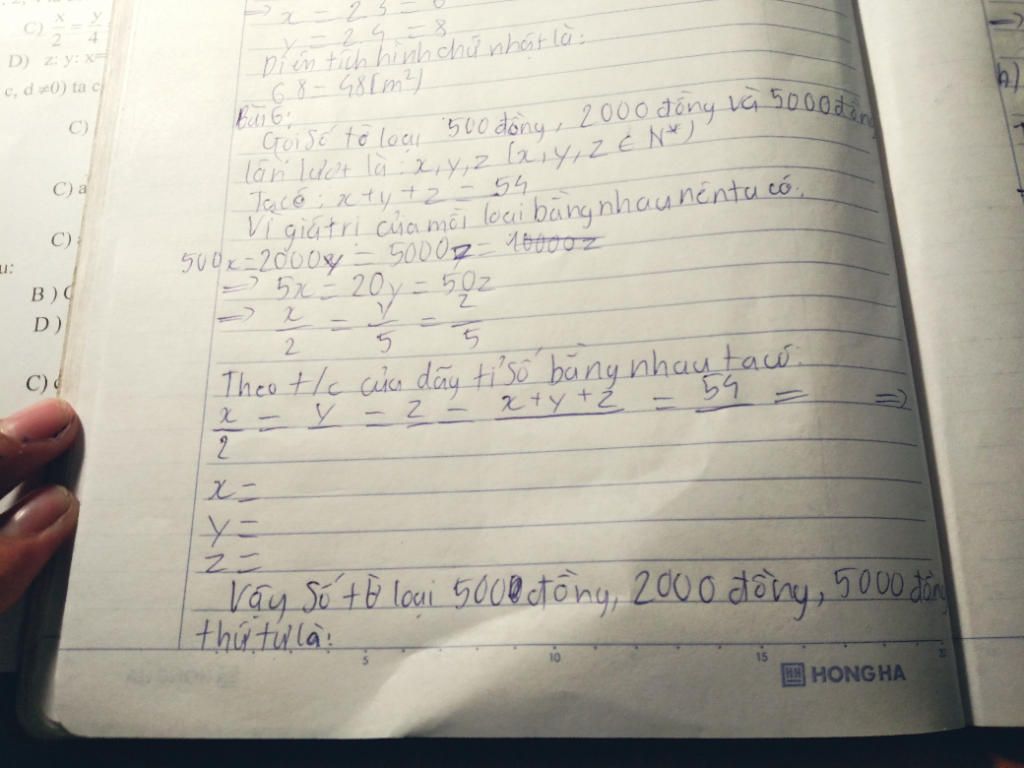 C) x/2 = y/4
D) z: y: x=
c, d ≠0) ta c
C)
C) a
C)
u:
B )
D )
C)
=> x = 2 3 = 6
y = 2 4 = 8
Diện tích hình chữ nhật là:
6 8 = 48(m²)
Bài 6:
Gọi số tờ loại 500 đồng, 2000 đồng và 5000 đồng
lần lượt là: x, y, z (x, y, z ∈ N*)
Ta có: x + y + z = 54
Vì giá trị của mỗi loại bằng nhau nên ta có:
500x = 2000y = 5000z = 10000z
=> 5x = 20y = 50z
=> x/2 = y/5 = z/5
Theo t/c của dãy tỉ số bằng nhau ta có:
x/2 = y = z = x + y + z = 54 = =>
x =
y =
z =
Vậy số tờ loại 500 đồng, 2000 đồng, 5000 đồng
thứ tự là:
5 10 15
HONG HA
h)